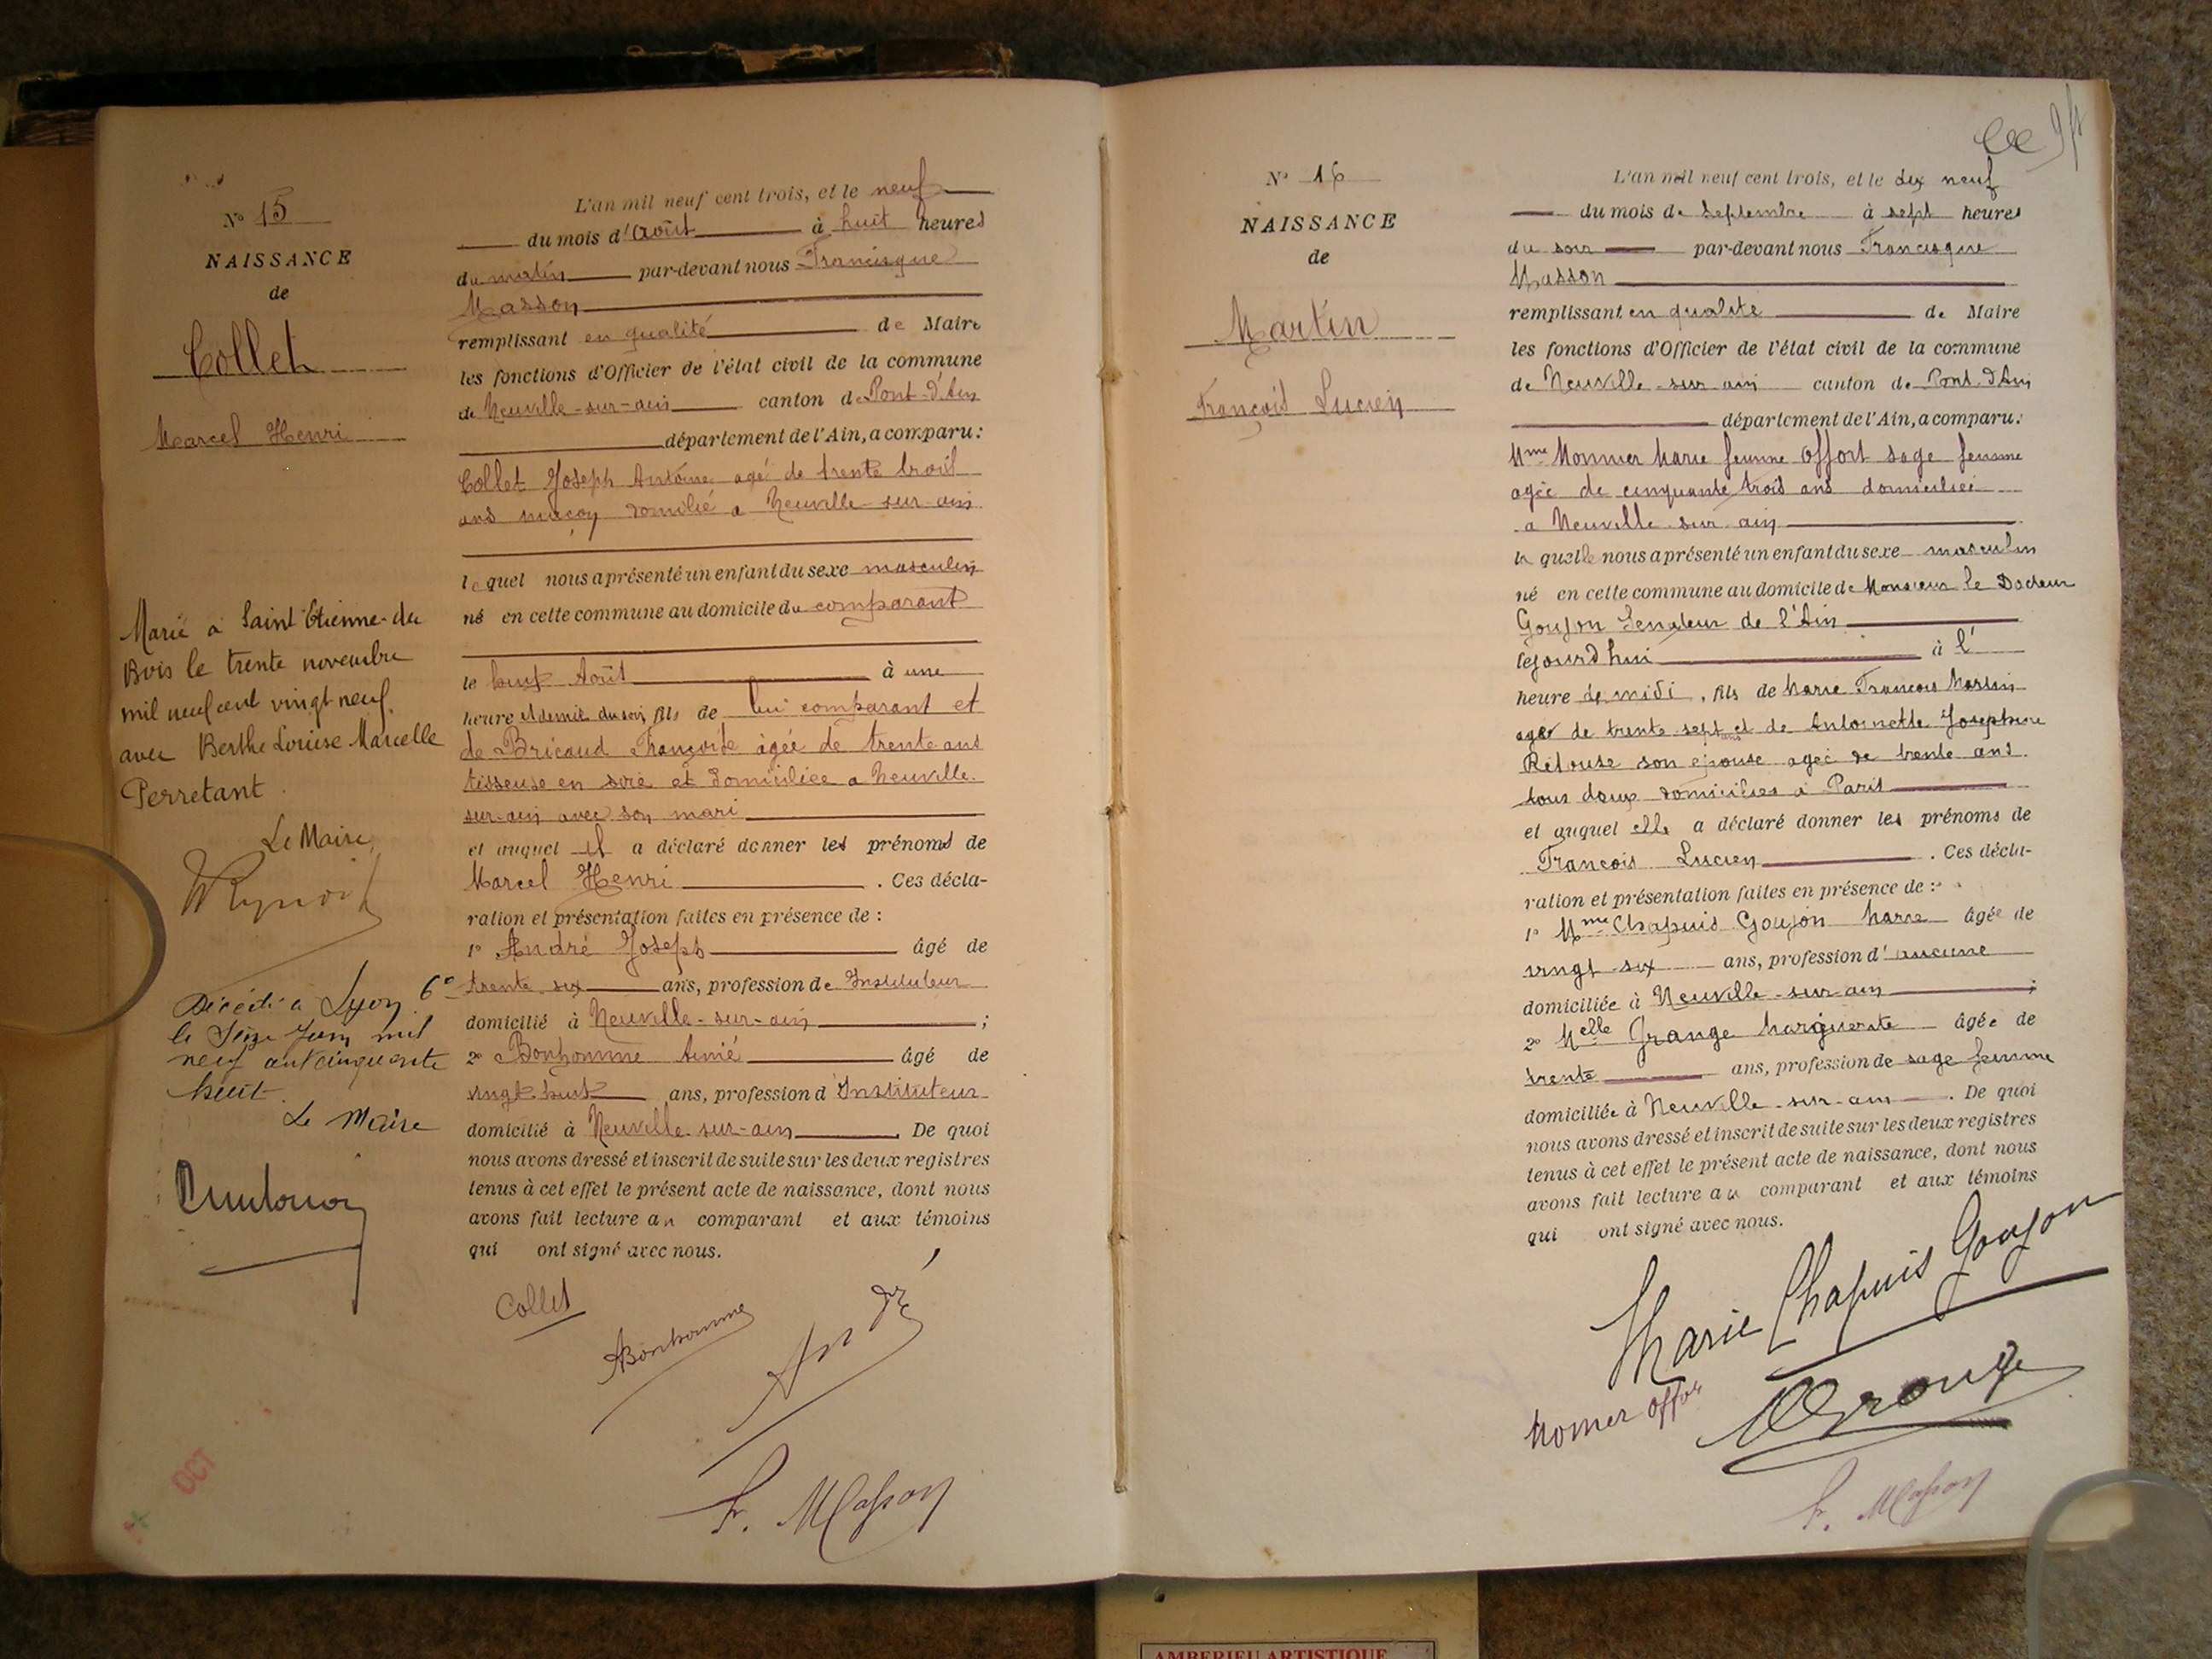 N° 15
NAISSANCE
de
Collet
Marcel Henri
Marié à Saint Etienne-du
Bois le trente novembre
mil neuf cent vingt neuf
avec Berthe Louise Marcelle
Perretant.
Le Maire,
Décédé à Lyon 6e
le Seize Juin mil
neuf cent cinquante
huit.
Le Maire
OCT
L'an mil neuf cent trois, et le neuf
du mois d'Août à huit heures
du matin par-devant nous Francisque
Masson
remplissant en qualité de Maire
les fonctions d'Officier de l'état civil de la commune
de Neuville-sur-ain canton de Pont-d'Ain
département de l'Ain, a comparu:
Collet Joseph Antoine agé de trente trois
ans maçon domilié a Neuville sur ain
lequel nous a présenté un enfant du sexe masculin
né en cette commune au domicile du comparant
le huit Août à une
heure et demie du soir, fils de lui comparant et
de Bricaud Françoise âgée de trente ans
tisseuse en soie et domiciliée a Neuville-
sur-ain avec son mari
et auquel il a déclaré donner les prénoms de
Marcel Henri. Ces décla-
ration et présentation faites en présence de :
1° André Joseph âgé de
trente six ans, profession de Instituteur
domicilié à Neuville-sur-ain ;
2° Bonhomme Aimé âgé de
vingt huit ans, profession d'Instituteur
domicilié à Neuville-sur-ain. De quoi
nous avons dressé et inscrit de suite sur les deux registres
tenus à cet effet le présent acte de naissance, dont nous
avons fait lecture au comparant et aux témoins
qui ont signé avec nous.
Collet
ABonhomme
André
F. Masson
N° 16
NAISSANCE
de
Martin
François Lucien
L'an mil neuf cent trois, et le dix neuf
du mois de Septembre à sept heures
du soir par-devant nous Francisque
Masson
remplissant en qualité de Maire
les fonctions d'Officier de l'état civil de la commune
de Neuville-sur-ain canton de Pont-d'Ain
département de l'Ain, a comparu:
Mme Monnier Marie femme Offort sage femme
agée de cinquante trois ans domiciliée
a Neuville sur ain
laquelle nous a présenté un enfant du sexe masculin
né en cette commune au domicile de Monsieur le Docteur
Goujon Senateur de l'Ain
cejourd'hui à l'
heure de midi, fils de Marie François Martin
agé de trente sept ans et de Antoinette Josephine
son epouse agée de trente ans
tous deux domiciliés à Paris
et auquel elle a déclaré donner les prénoms de
François Lucien. Ces décla-
ration et présentation faites en présence de :
1° Mme Chapuis Goujon Marie âgée de
vingt-six ans, profession d'aucune
domiciliée à Neuville-sur-ain ;
2° Melle Grange Marguerite âgée de
trente ans, profession de sage femme
domiciliée à Neuville-sur-ain. De quoi
nous avons dressé et inscrit de suite sur les deux registres
tenus à cet effet le présent acte de naissance, dont nous
avons fait lecture au comparant et aux témoins
qui ont signé avec nous.
Marie Chapuis Goujon
MGrange
F. Masson
AMBERIEU ARTISTIQUE